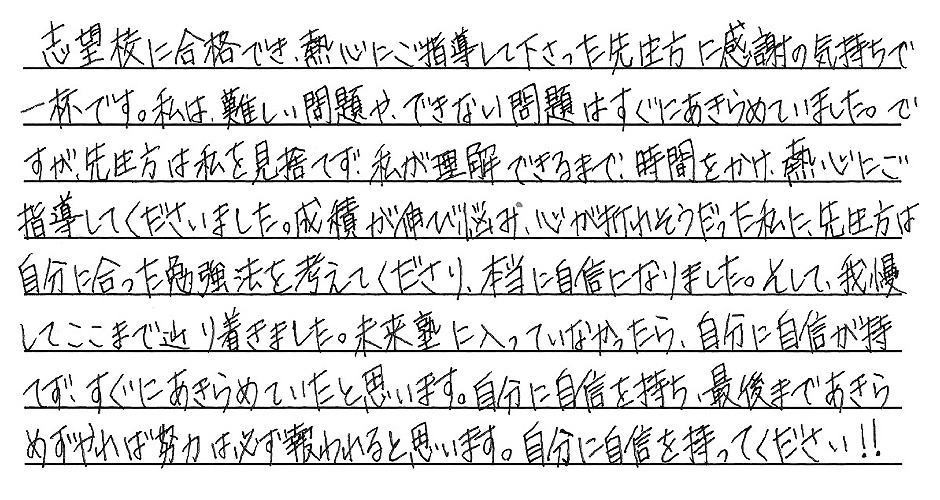 志望校に合格でき、熱心にご指導して下さった先生方に感謝の気持ちで
一杯です。私は、難しい問題や、できない問題はすぐにあきらめていました。で
すが、先生方は私を見捨てず、私が理解できるまで、時間をかけ、熱心にご
指導してくださいました。成績が伸び悩み、心が折れそうだった私に、先生方は
自分に合った勉強法を考えてくださり、本当に自信になりました。そして、我慢
してここまで辿り着きました。未来塾に入っていなかったら、自分に自信が持
てず、すぐにあきらめていたと思います。自分に自信を持ち、最後まであきら
めずやれば努力は必ず報われると思います。自分に自信を持ってください!!